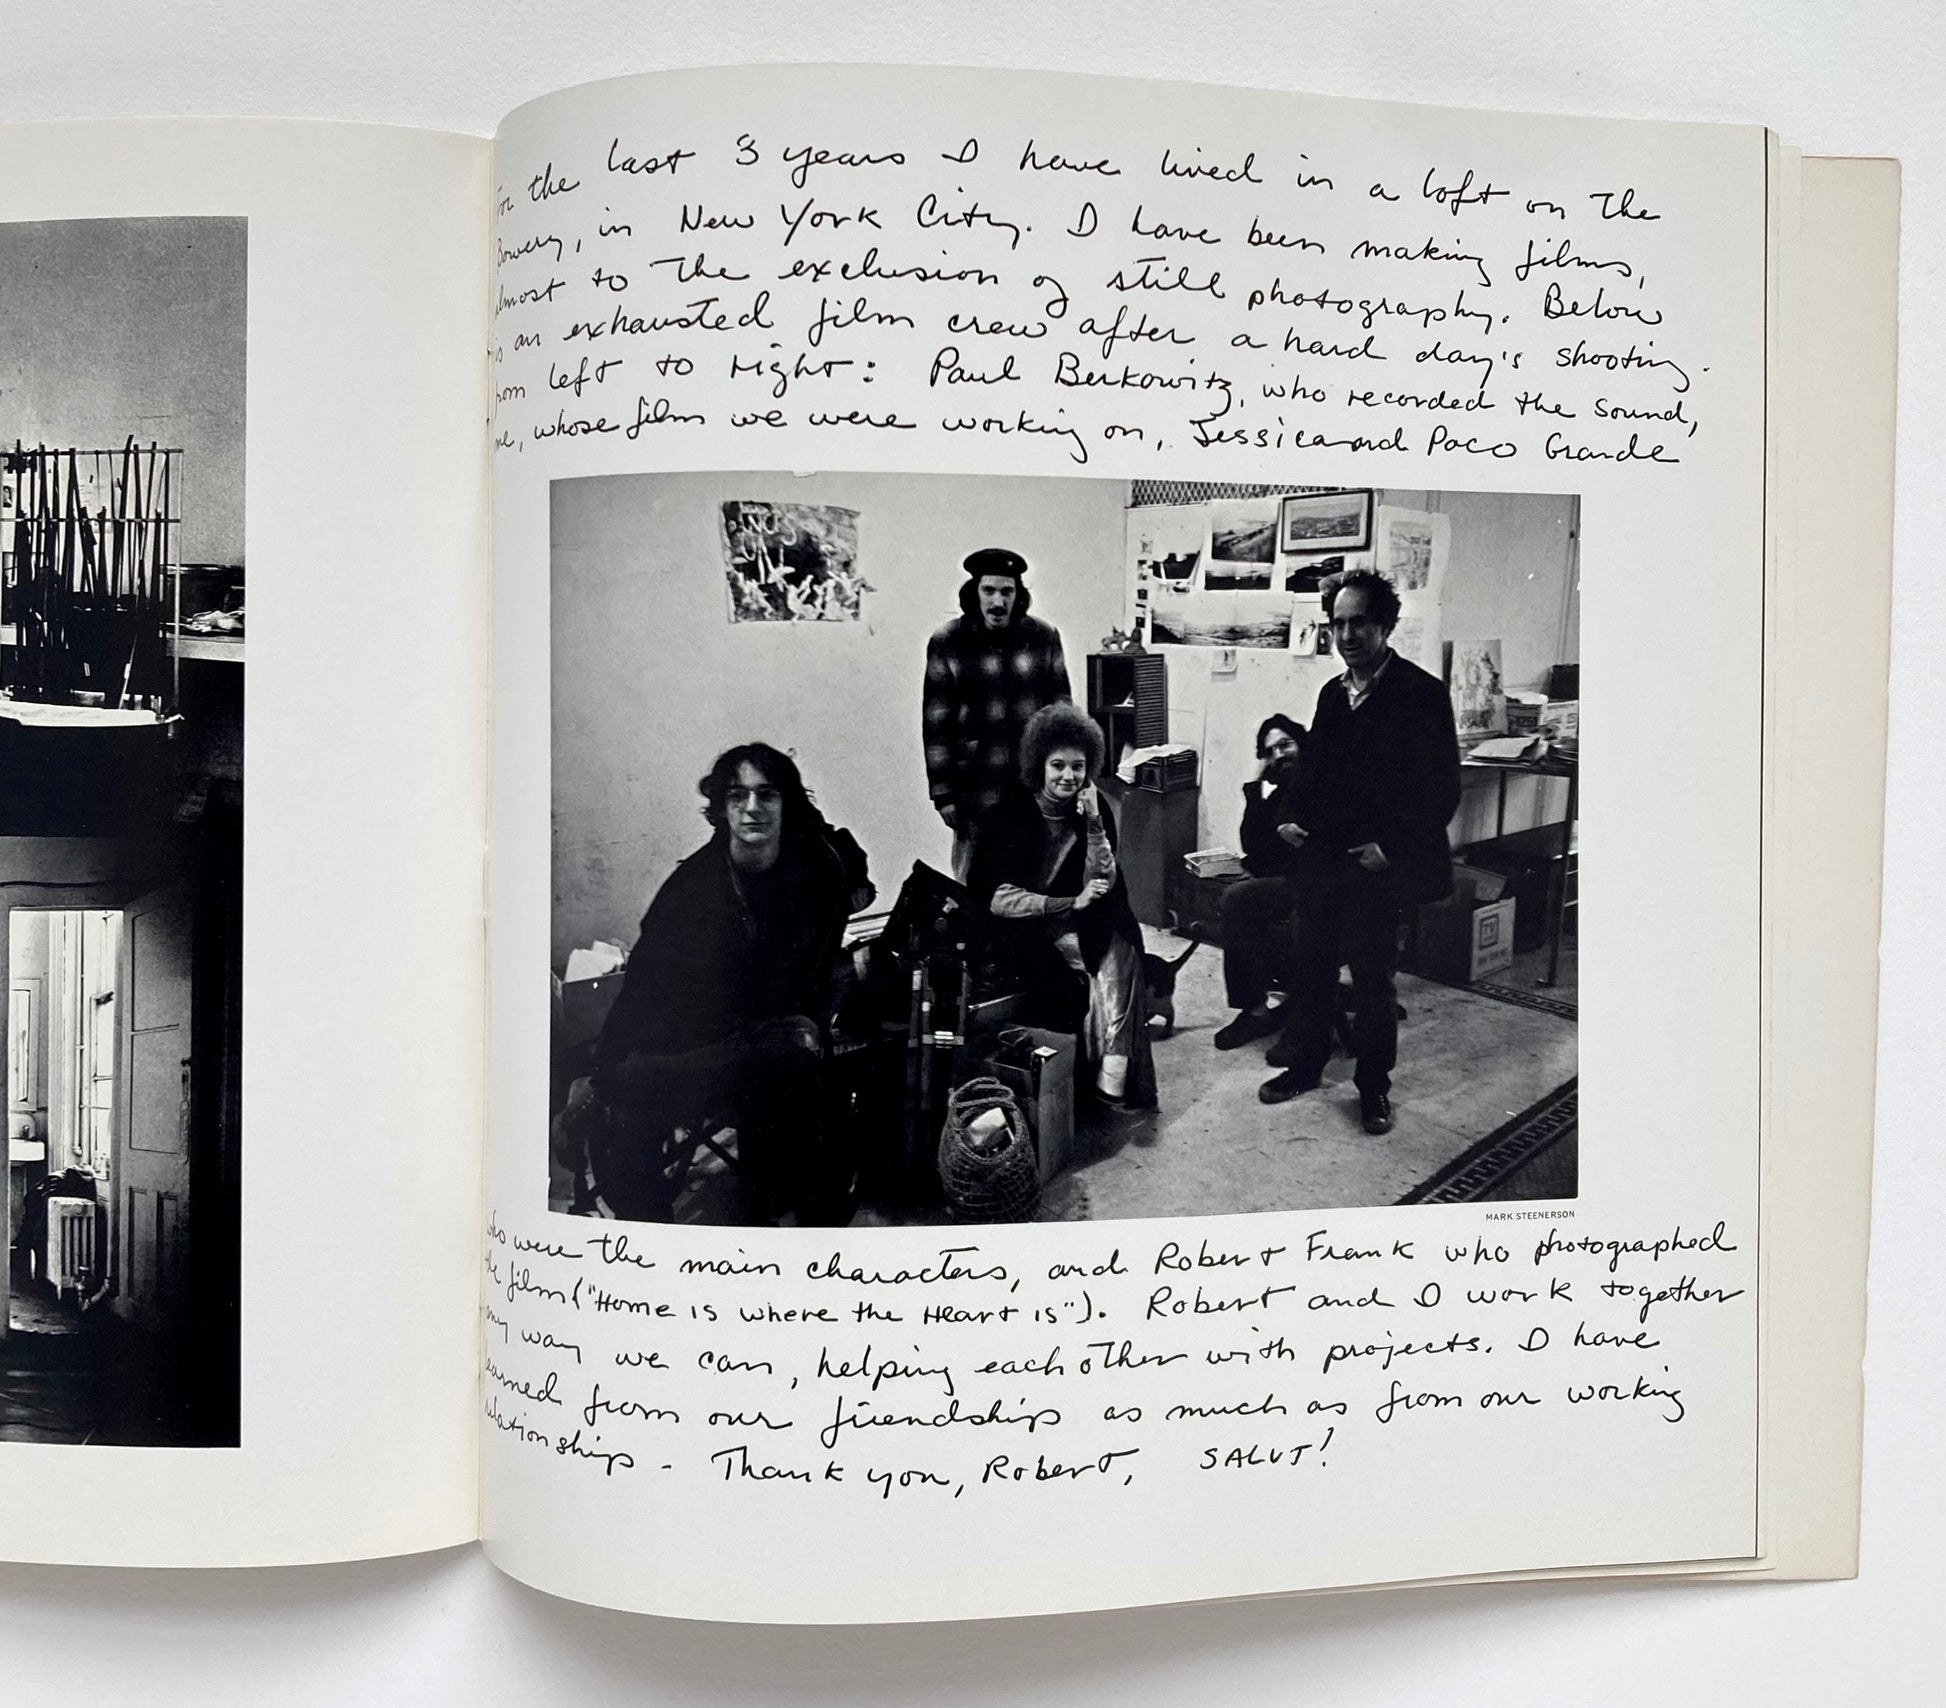 For the last 3 years I have lived in a loft on the
Bowery, in New York City. I have been making films,
almost to the exclusion of still photography. Below
is an exhausted film crew after a hard day's shooting.
From left to right: Paul Berkowitz, who recorded the sound,
me, whose film we were working on, Jessica and Paco Grande
MARK STEENERSON
who were the main characters, and Robert Frank who photographed
the film ("Home is where the Heart is"). Robert and I work together
any way we can, helping each other with projects. I have
learned from our friendship as much as from our working
relationship - Thank you, Robert, SALUT!